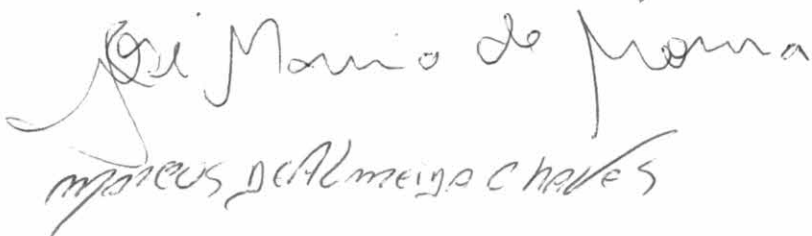 José Mario de Moura
Marcus de Almeida Chaves